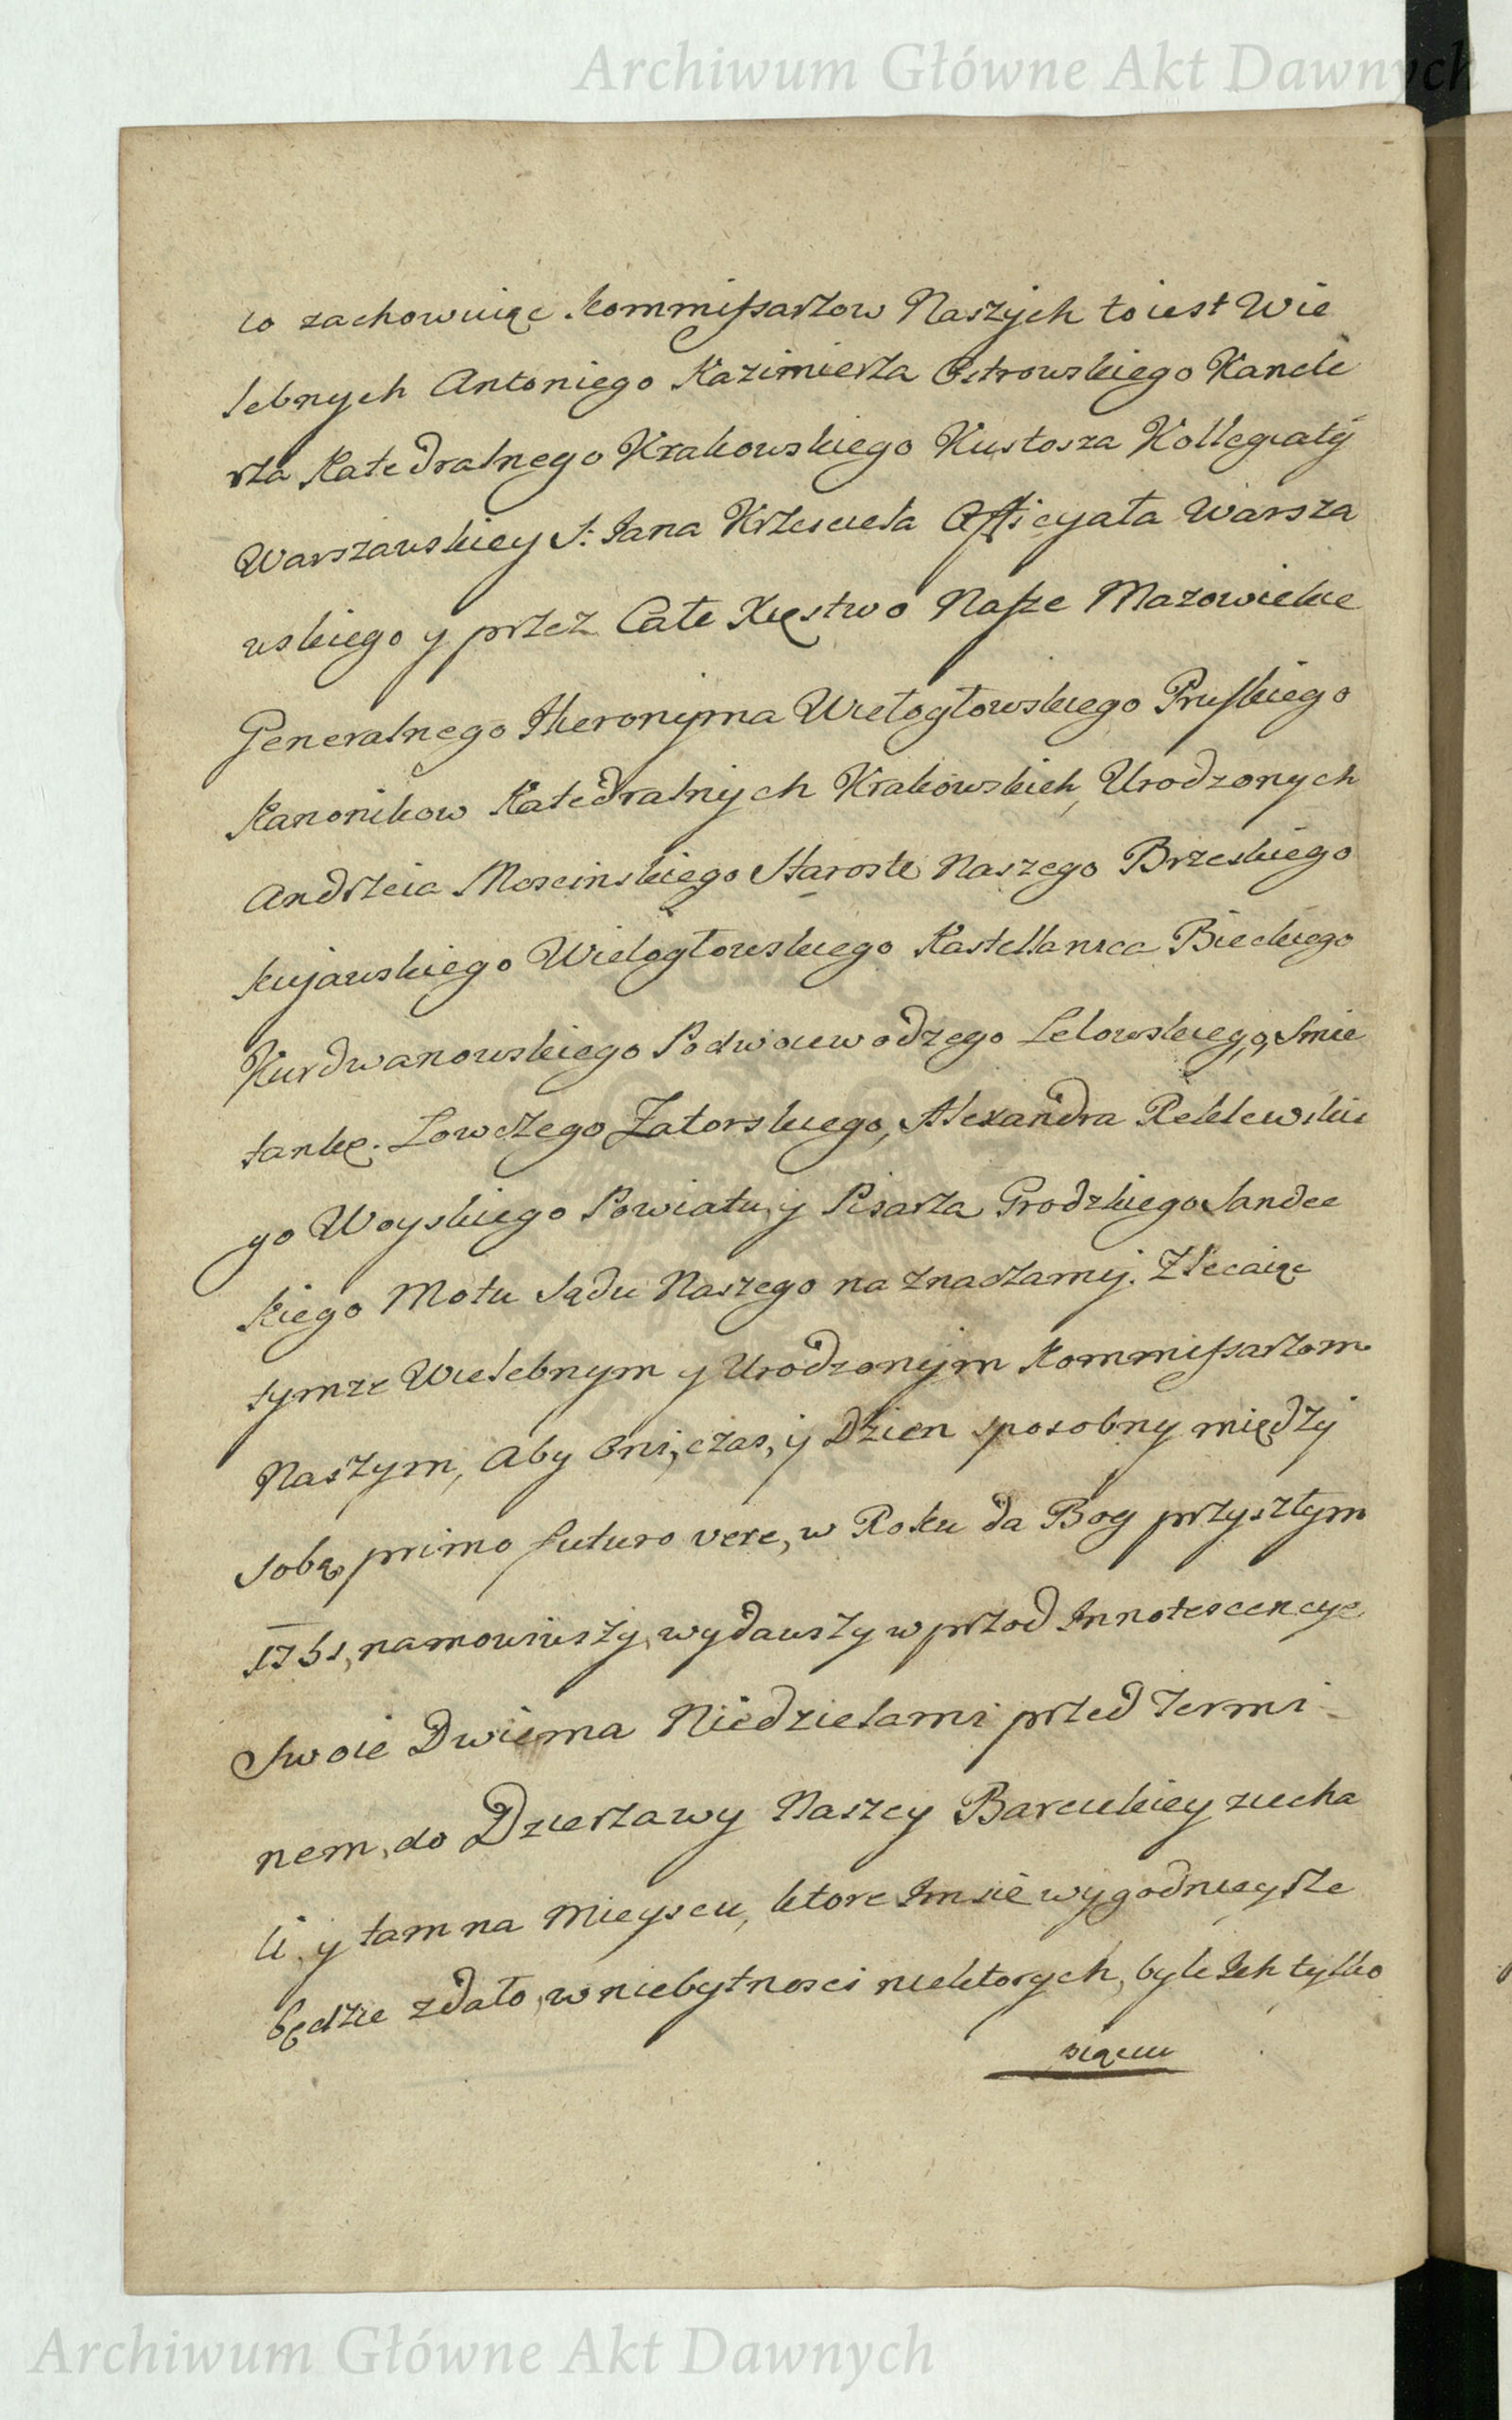 Archiwum Główne Akt Dawnych
to zachowuiąc Kommissarzow Naszych to iest Wie
lebnych Antoniego Kazimierza Ostrowskiego Kancle
rza Katedralnego Krakowskiego Kustosza Kollegiaty
Warszawskiey S: Jana Krzciciela Officyała Warsza
wskiego y przez Całe Xięstwo Nasze Mazowieckie
Generalnego Hieronyma Wielogłowskiego Pruskiego
Kanonikow Katedralnych Krakowskich, Urodzonych
Andrzeia Moscinskiego Staroste Naszego Brzeskiego
Kujawskiego Wielogłowskiego Kasztellanica Bieckiego
Kurdwanowskiego Podwoiewodzego Lelowskiego, Smie
tankę Łowczego Zatorskiego, Alexandra Reklewskie
go Woyskiego Powiatu, y Pisarza Grodzkiego Sandec
kiego Motu Sądu Naszego na znaczamy. Zlecaiąc
tymze Wielebnym y Urodzonym Kommissarzom
Naszym, Aby Oni, czas, y Dzien sposobny między
sobą, primo futuro vere, w Roku da Bog przyszłym
1751, namowiwszy, wydawszy w przod Innotescencye
Swoie Dwiema Niedzielami przed Termi-
nem, do Dzierzawy Naszey Barcickiey ziecha
li y tam na Mieyscu, ktore Im się wygodnieysze
będzie zdało, w niebytnosci niektorych, byle Ich tylko
Archiwum Główne Akt Dawnych